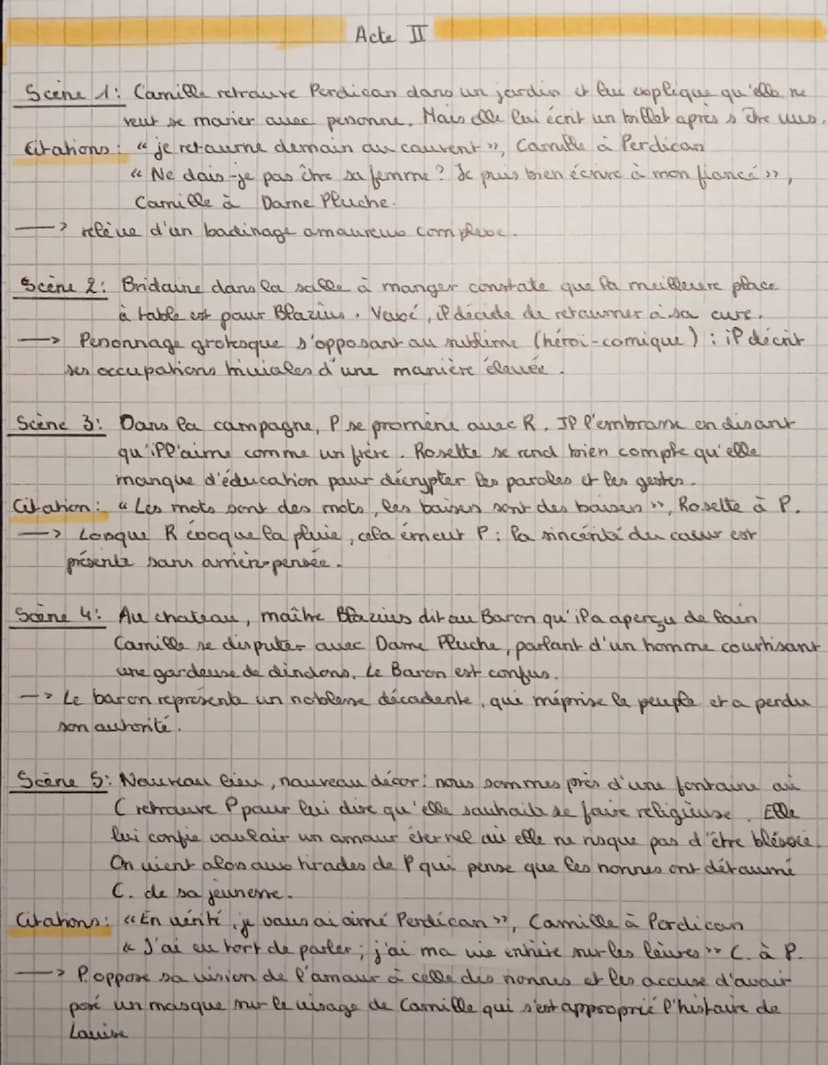 Acte II
Scène 1: Camille retrouve Perdican dans un jardin et lui explique qu'elle ne
veut se marier avec personne. Mais elle lui écrit un billet après s'être vus.
Citations: "je retourne demain au couvent", Camille à Perdican
"Ne dois-je pas être sa femme? Je puis bien écrire à mon fiancé",
Camille à Dame Pluche.
—> relève d'un badinage amoureux complexe.
Scène 2: Bridaine dans la salle à manger constate que la meilleure place
à table est pour Blazius. Vexé, il décide de retourner à sa cure.
—> Personnage grotesque s'opposant au sublime (héroï-comique): il décrit
ses occupations triviales d'une manière élevée.
Scène 3: Dans la campagne, P se promène avec R. Il l'embrasse en disant
qu'il l'aime comme un frère. Rosette se rend bien compte qu'elle
manque d'éducation pour décrypter les paroles et les gestes.
Citation: "Les mots sont des mots, les baisers sont des baisers", Rosette à P.
—> Lorsque R évoque la pluie, cela émeut P: la sincérité du cœur est
présente sans arrière-pensée.
Scène 4: Au chateau, maître Blazius dit au Baron qu'il a aperçu de loin
Camille se disputer avec Dame Pluche, parlant d'un homme courtisant
une gardeuse de dindons. Le Baron est confus.
—> Le baron représente un noblesse décadente, qui méprise le peuple et a perdu
son autorité.
Scène 5: Nouveau lieu, nouveau décor: nous sommes près d'une fontaine où
C retrouve P pour lui dire qu'elle souhaite se faire religieuse. Elle
lui confie vouloir un amour éternel où elle ne risque pas d'être blessée.
On vient alors aux tirades de P qui pense que les nonnes ont détourné
C. de sa jeunesse.
Citations: "En vérité, je vous ai aimé Perdican", Camille à Perdican
"J'ai eu tort de parler; j'ai ma vie entière sur les lèvres" C. à P.
—> P. oppose sa vision de l'amour à celle des nonnes et les accuse d'avoir
posé un masque sur le visage de Camille qui s'est approprié l'histoire de
Louise